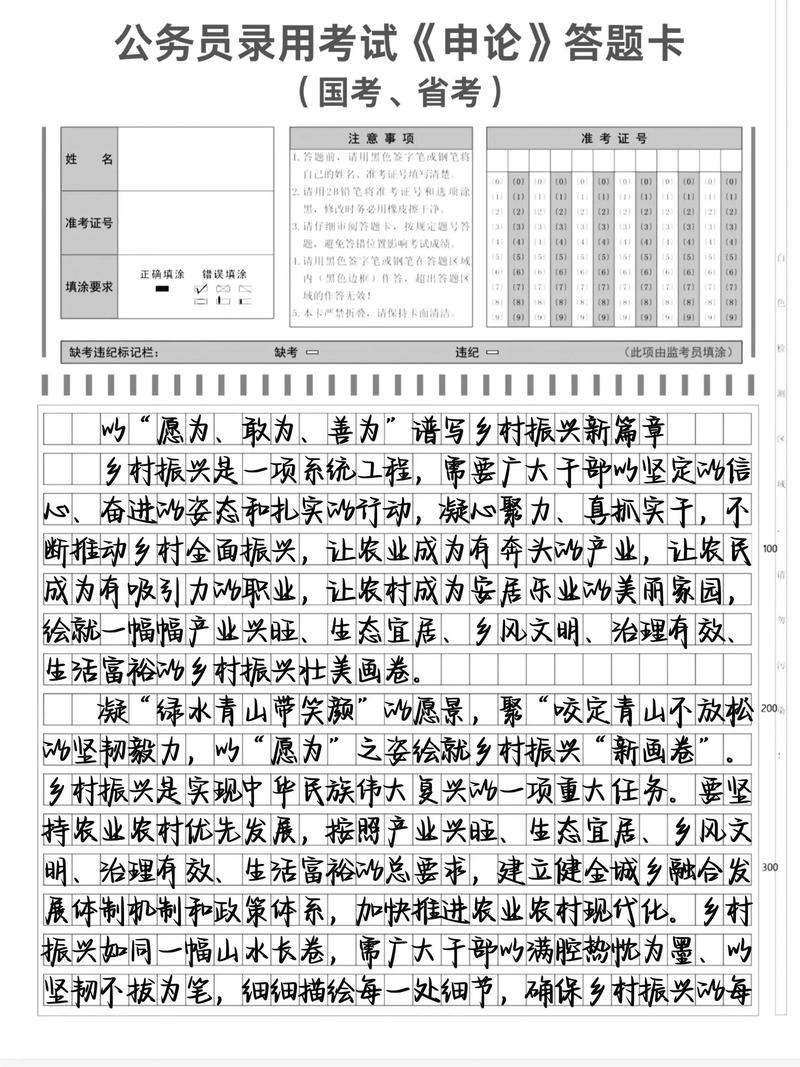 公务员录用考试《申论》答题卡
（国考、省考）
姓 名
准考证号
填涂要求
正确填涂 错误填涂
注意事项
1.答题前，请用黑色签字笔或钢笔将
自己的姓名、准考证号填写清楚。
2.请用2B铅笔将准考证号和选项涂
黑，修改时务必用橡皮擦干净。
3.请仔细审阅答题卡，按规定题号答
题，避免答错位置影响考试成绩。
4.请用黑色签字笔或钢笔在答题区域
内（黑色边框）作答，超出答题区
域的作答无效！
5.本卡严禁折叠，请保持卡面清洁。
准考证号
(0) (0) (0) (0) (0) (0) (0) (0) (0) (0) (0) (0)
(1) (1) (1) (1) (1) (1) (1) (1) (1) (1) (1) (1)
(2) (2) (2) (2) (2) (2) (2) (2) (2) (2) (2) (2)
(3) (3) (3) (3) (3) (3) (3) (3) (3) (3) (3) (3)
(4) (4) (4) (4) (4) (4) (4) (4) (4) (4) (4) (4)
(5) (5) (5) (5) (5) (5) (5) (5) (5) (5) (5) (5)
(6) (6) (6) (6) (6) (6) (6) (6) (6) (6) (6) (6)
(7) (7) (7) (7) (7) (7) (7) (7) (7) (7) (7) (7)
(8) (8) (8) (8) (8) (8) (8) (8) (8) (8) (8) (8)
(9) (9) (9) (9) (9) (9) (9) (9) (9) (9) (9) (9)
缺考违纪标记栏： 缺考 违纪 （此项由监考员填涂）
以“愿为、敢为、善为”谱写乡村振兴新篇章
乡村振兴是一项系统工程，需要广大干部以坚定的信
心、奋进的姿态和扎实的行动，凝心聚力、真抓实干，不
断推动乡村全面振兴，让农业成为有奔头的产业，让农民
100
成为有吸引力的职业，让农村成为安居乐业的美丽家园，
绘就一幅幅产业兴旺、生态宜居、乡风文明、治理有效、
生活富裕的乡村振兴壮美画卷。
凝“绿水青山带笑颜”的愿景，聚“咬定青山不放松
200
的坚韧毅力，以“愿为”之姿绘就乡村振兴“新画卷”。
乡村振兴是实现中华民族伟大复兴的一项重大任务。要坚
持农业农村优先发展，按照产业兴旺、生态宜居、乡风文
明、治理有效、生活富裕的总要求，建立健全城乡融合发
300
展体制机制和政策体系，加快推进农业农村现代化。乡村
振兴如同一幅山水长卷，需广大干部以满腔热忱为墨、以
坚韧不拔为笔，细细描绘每一处细节，确保乡村振兴的每
白色检测区域，请勿污染！